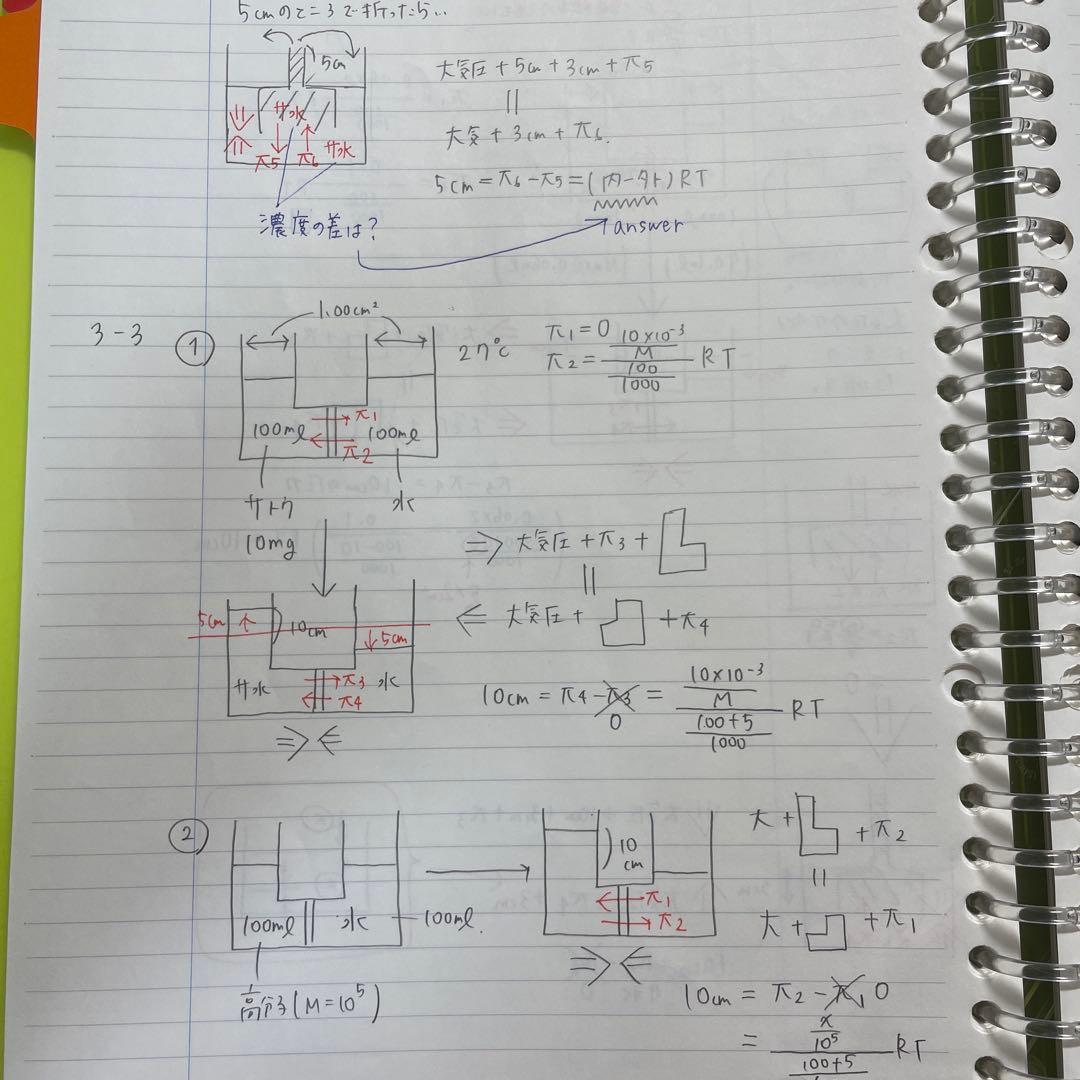 5cmのところで折ったら..
5cm
サ水
π5 π6 サ水
大気圧 + 5cm + 3cm + π5
=
大気 + 3cm + π6.
5cm = π6 - π5 = (内-外) RT
濃度の差は?
↑answer
3-3 ①
1.00cm²
27℃
π1 = 0
π2 = (10×10⁻³/M)/(100/1000) RT
100ml π1 100ml
π2
サトウ 水
10mg
⇒ 大気圧 + π3 +
=
⇐ 大気圧 + + π4
5cm ↑ 10cm ↓5cm
サ水 π3 水
π4
10cm = π4 - π3 = (10×10⁻³/M)/((100+5)/1000) RT
0
②
100ml 水 100ml.
高分子(M=10⁵)
10cm
π1
π2
大 + + π2
=
大 + + π1
10cm = π2 - π1 0
= (x/10⁵)/(100+5) RT